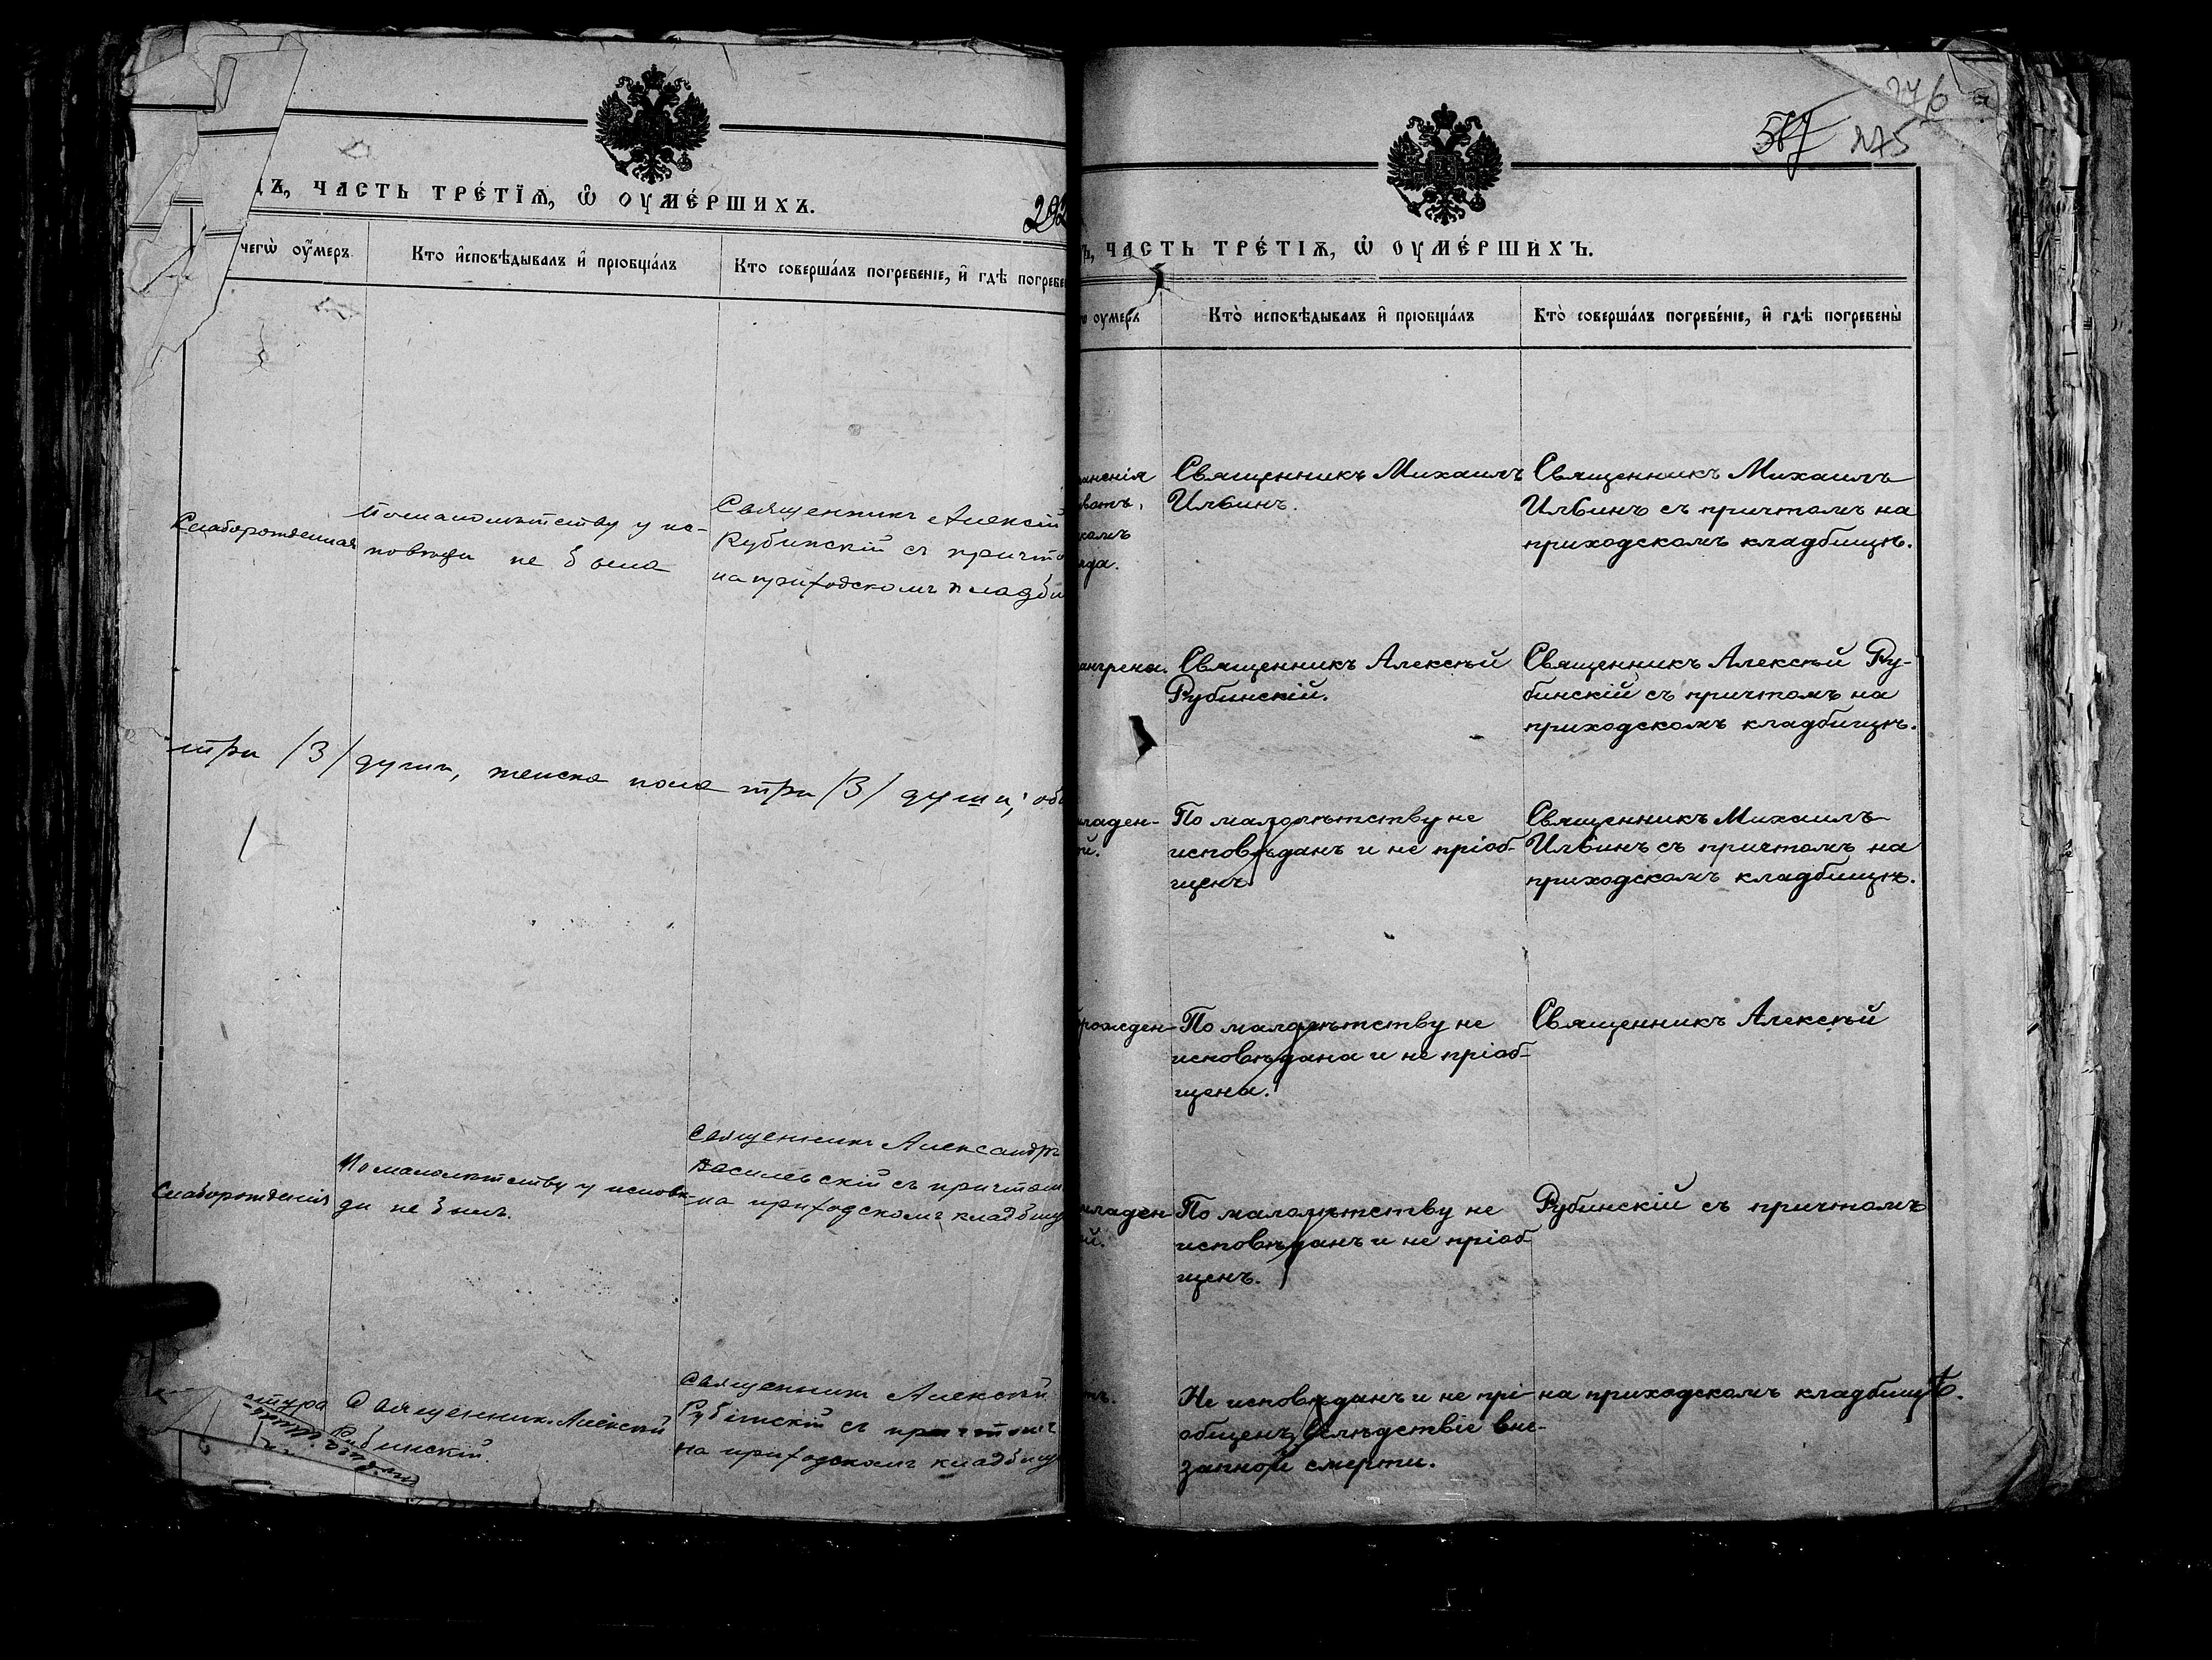 ЧАСТЬ ТРЕ́ТІѦ, Ѡ҆ ОУМЕ́РШИХЪ.
292
чегѡ̀ оу҆́меръ
Кто и҆сповѣ́дывалъ и҆ прїѡбща́лъ
Кто соверша́лъ погребе́нїе, и҆ гдѣ̀ погребе
Слаборожденная
По малолѣтству у ис-
повѣди не была
Священникъ Алексій
Рубинскій съ причто
на приходскомъ кладби
три /3/ души, женска пола три /3/ души; об
Слаборожденія
По малолѣтству у исповѣ-
ди не былъ.
Священникъ Александръ
Василевскій съ причтом
на приходскомъ кладбищ
Священникъ Алексѣй
Рубинскій.
Священникъ Алексѣй
Рубинскій съ причтомъ
на приходскомъ кладбищ
276
567 275
ЧАСТЬ ТРЕ́ТІѦ, Ѡ҆ ОУМЕ́РШИХЪ.
оумеръ
Кто̀ исповѣ́дывалъ и҆ прїѡбща́лъ
Кто̀ соверша́лъ погребе́нїе, и҆ гдѣ̀ погребены̀
Священникъ Михаилъ
Ильинъ.
Священникъ Михаилъ
Ильинъ съ причтомъ на
приходскомъ кладбищѣ.
ангрена.
Священникъ Алексѣй
Рубинскій.
Священникъ Алексѣй Ру-
бинскій съ причтомъ на
приходскомъ кладбищѣ.
младен-
По малолѣтству не
исповѣданъ и не пріоб-
щенъ.
Священникъ Михаилъ
Ильинъ съ причтомъ на
приходскомъ кладбищѣ.
рожден-
По малолѣтству не
исповѣдана и не пріоб-
щена.
Священникъ Алексѣй
младен-
По малолѣтству не
исповѣданъ и не пріоб-
щенъ.
Рубинскій съ причтомъ
Не исповѣданъ и не прі-
общенъ вслѣдствіе вне-
запной смерти.
на приходскомъ кладбищѣ.